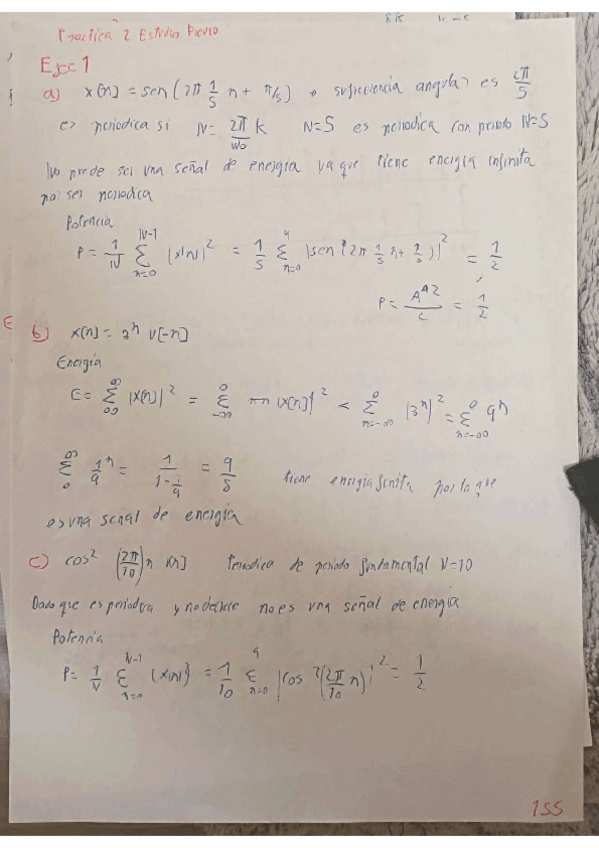 Practica 2 Estudio Previo
Ejec 1
a) x[n] = sen(2π 1/5 n + π/5) → su frecuencia angular es 2π/5
es periodica si N = 2π/w0 k N=5 es periodica con periodo N=5
No puede ser una señal de energia ya que tiene energia infinita
por ser periodica
Potencia
P = 1/N Σ n=0 N-1 |x[n]|^2 = 1/5 Σ n=0 4 |sen(2π 1/5 n + )|^2 = 1/2
P = = 1/2
b) x[n] = 3^n u[-n]
Energia
E = Σ |x[n]|^2 = Σ |x[n]|^2 Σ n=-∞ 0 |3^n|^2 = Σ n=-∞ 0 9^n
Σ 0 ∞ 1/9^n = 1/(1-1/9) = 9/8 tiene energia finita por lo que
es una señal de energia
c) cos^2 (2π/10)n Periodica de periodo fundamental N=10
Dado que es periodica y no decrece no es una señal de energia
Potencia
P = 1/N Σ n=0 N-1 |x[n]|^2 = 1/10 Σ n=0 9 |cos^2(2π/10 n)|^2 = 1/2
155